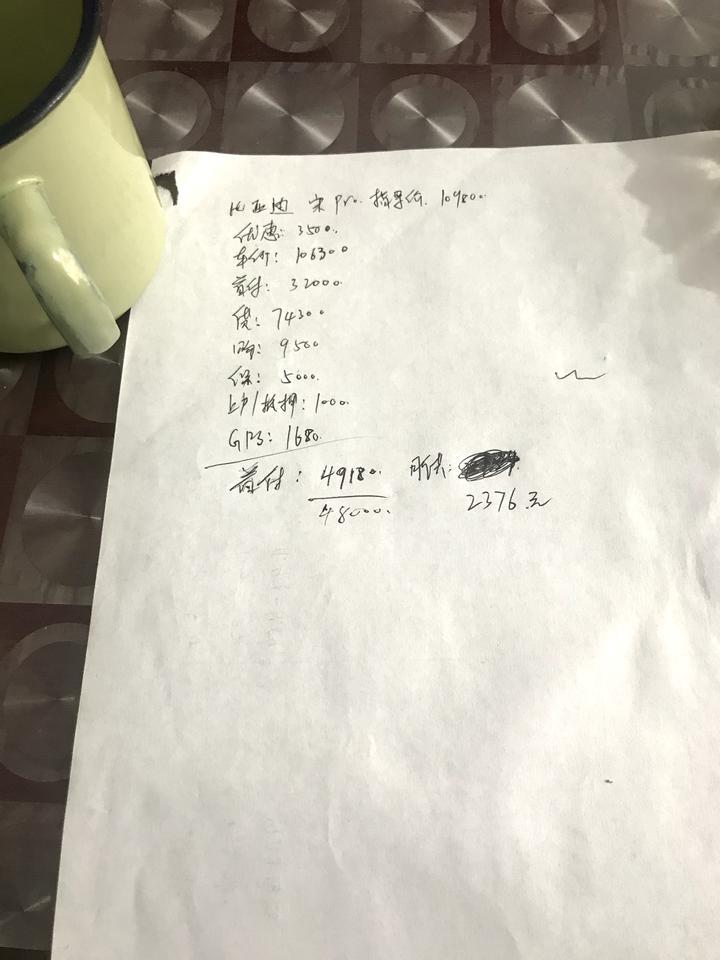 比亚迪 宋 pro. 指导价. 109800.
优惠: 3500.
车价: 106300
首付: 32000.
贷: 74300
购: 9500
保: 5000.
上户/抵押: 1000.
GPS: 1680.
首付: 49180. 月供:
48000. 2376元